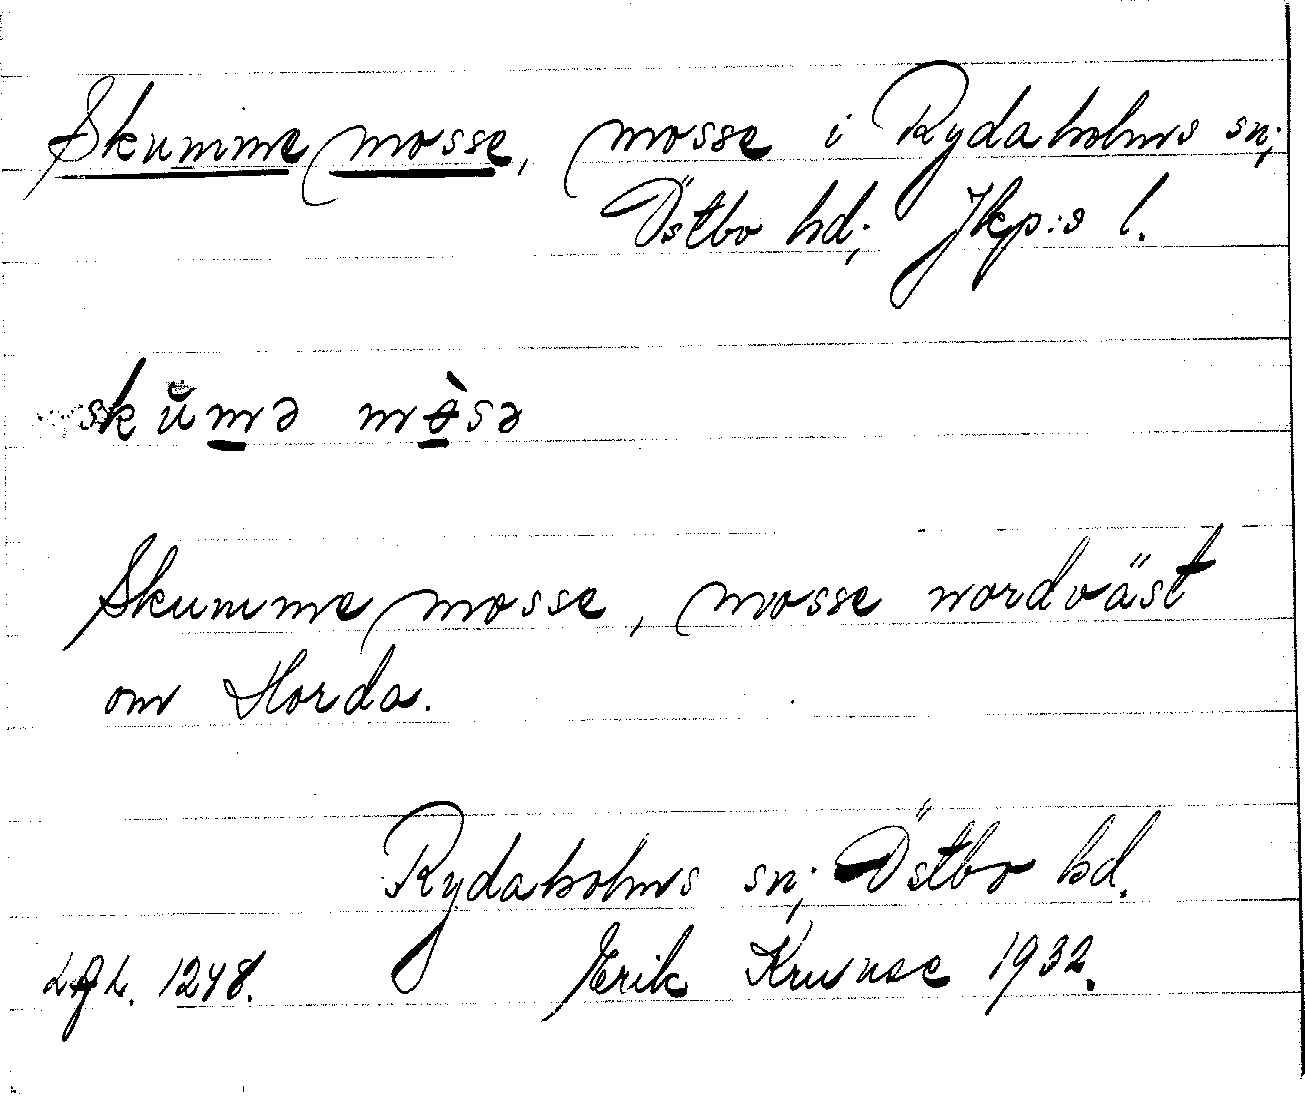 Skumme mosse, mosse i Rydaholms sn;
Östbo hd; Jkp:s l.
skŭmə mòsə
Skumme mosse, mosse nordväst
om Horda.
Rydaholms sn; Östbo hd.
1248. Erik Krusse 1932.